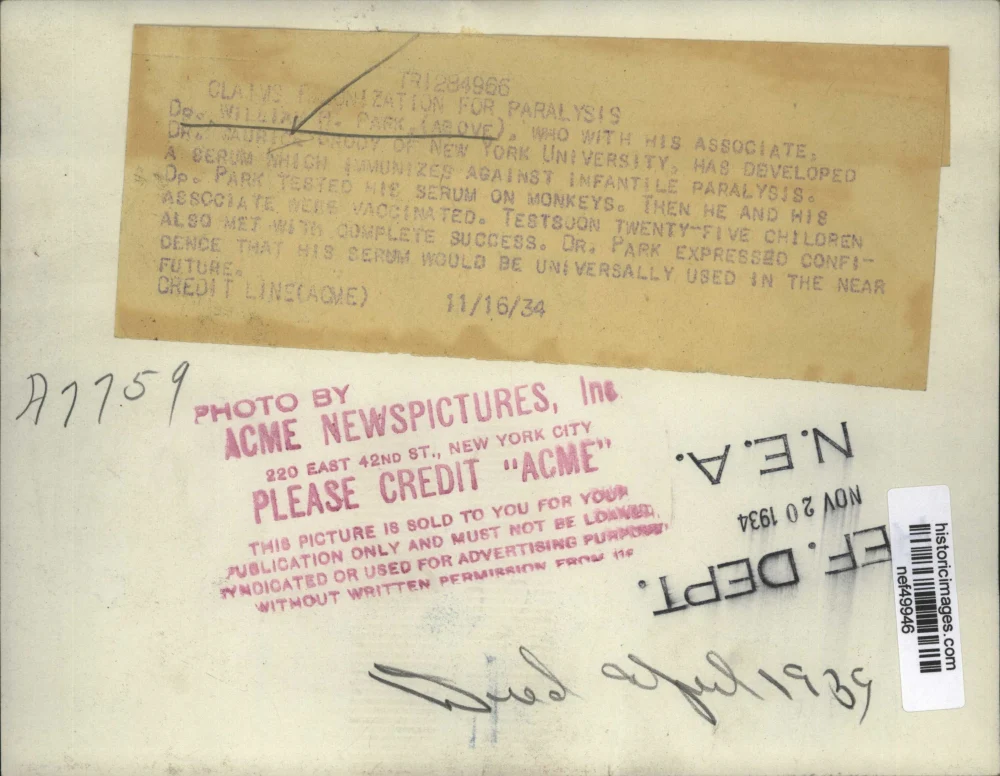 TR1284966
CLAIMS IMMUNIZATION FOR PARALYSIS
DR. WILLIAM H. PARK,(ABOVE), WHO WITH HIS ASSOCIATE,
DR. MAURICE BRODY OF NEW YORK UNIVERSITY, HAS DEVELOPED
A SERUM WHICH IMMUNIZES AGAINST INFANTILE PARALYSIS.
DR. PARK TESTED HIS SERUM ON MONKEYS. THEN HE AND HIS
ASSOCIATE WERE VACCINATED. TESTSOON TWENTY-FIVE CHILDREN
ALSO MET WITH COMPLETE SUCCESS. DR. PARK EXPRESSED CONFI-
DENCE THAT HIS SERUM WOULD BE UNIVERSALLY USED IN THE NEAR
FUTURE.
CREDIT LINE(ACME) 11/16/34
A7759
PHOTO BY
ACME NEWSPICTURES, Inc
220 EAST 42ND ST., NEW YORK CITY
PLEASE CREDIT "ACME"
THIS PICTURE IS SOLD TO YOU FOR YOUR
PUBLICATION ONLY AND MUST NOT BE LOANED,
SYNDICATED OR USED FOR ADVERTISING PURPOSES
WITHOUT WRITTEN PERMISSION FROM US
N.E.A.
NOV 20 1934
EF. DEPT.
historicimages.com
nef49946
Died April 1939